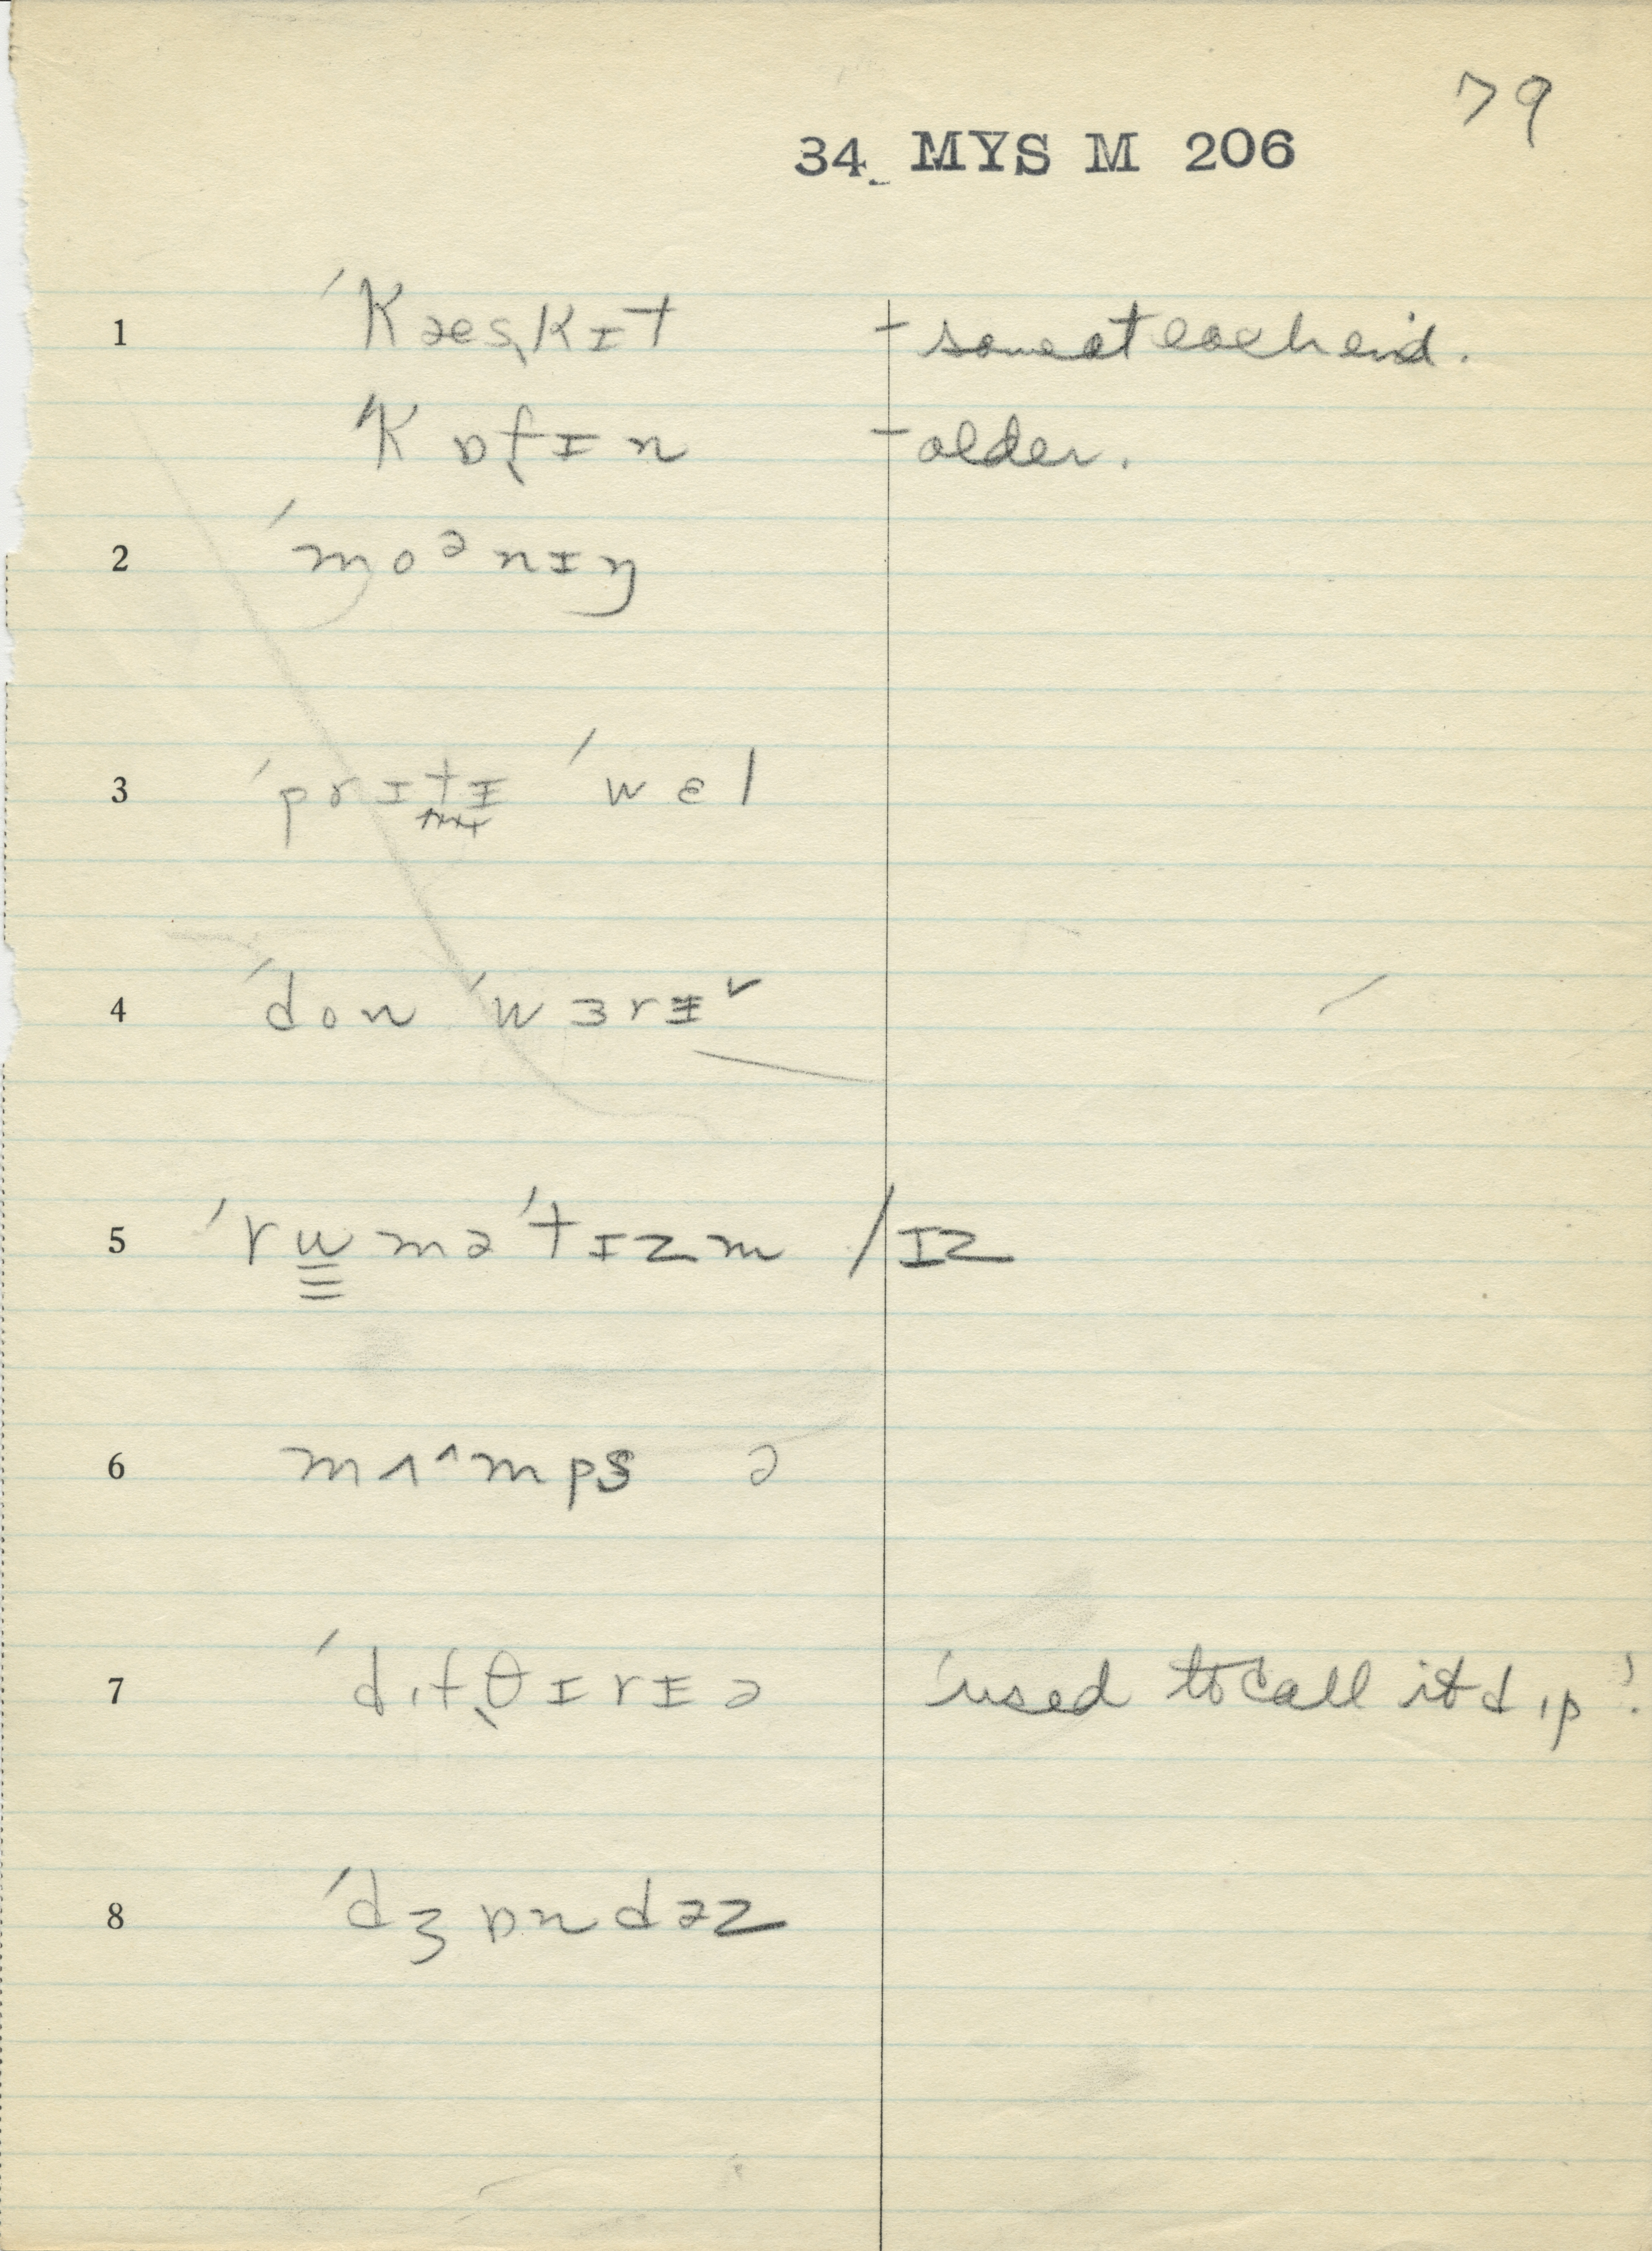 79
34 MYS M 206
1 ˈkæskɪt – same at each end.
ˈkɒfɪn – older.
2 ˈmoᵊnɪŋ
3 ˈprɪtɪ ˈwɛl
4 ˈdon ˈwɜrɪ˅
5 ˈruməˈtɪzm /ɪz
6 mʌ^mps ə
7 ˈdɪfθɪrɪə 'used to call it dɪp'.
8 ˈdʒɒndəz